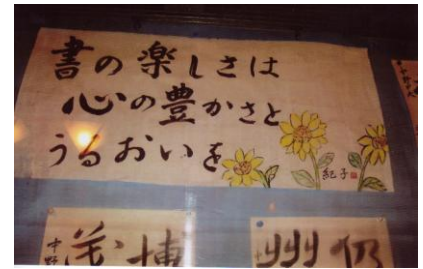 書の楽しさは
心の豊かさと
うるおいを
紀子
中野
茂 博